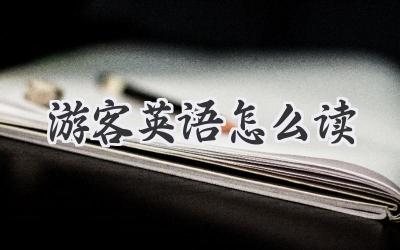 游客英语怎么读